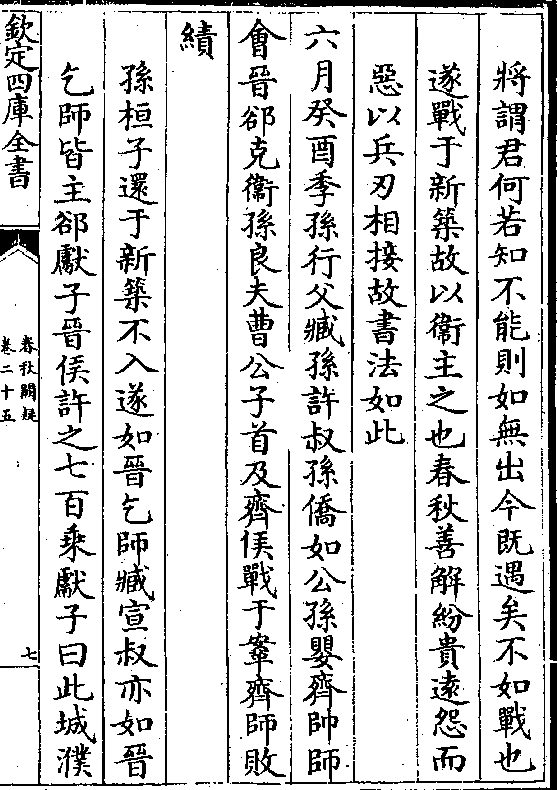 將謂君何若知不能則如無出今既遇矣不如戰也
遂戰于新築故以衞主之也春秋善解紛貴遠怨而
惡以兵刃相接故書法如此
六月癸酉季孫行父臧孫許叔孫僑如公孫嬰齊帥師
會晉郤克衞孫良夫曹公子首及齊侯戰于鞌齊師敗
績
孫桓子還于新築不入遂如晉乞師臧宣叔亦如晉
乞師皆主郤獻子晉侯許之七百乘獻子曰此城濮
欽定四庫全書
春秋闕疑
卷二十五
七